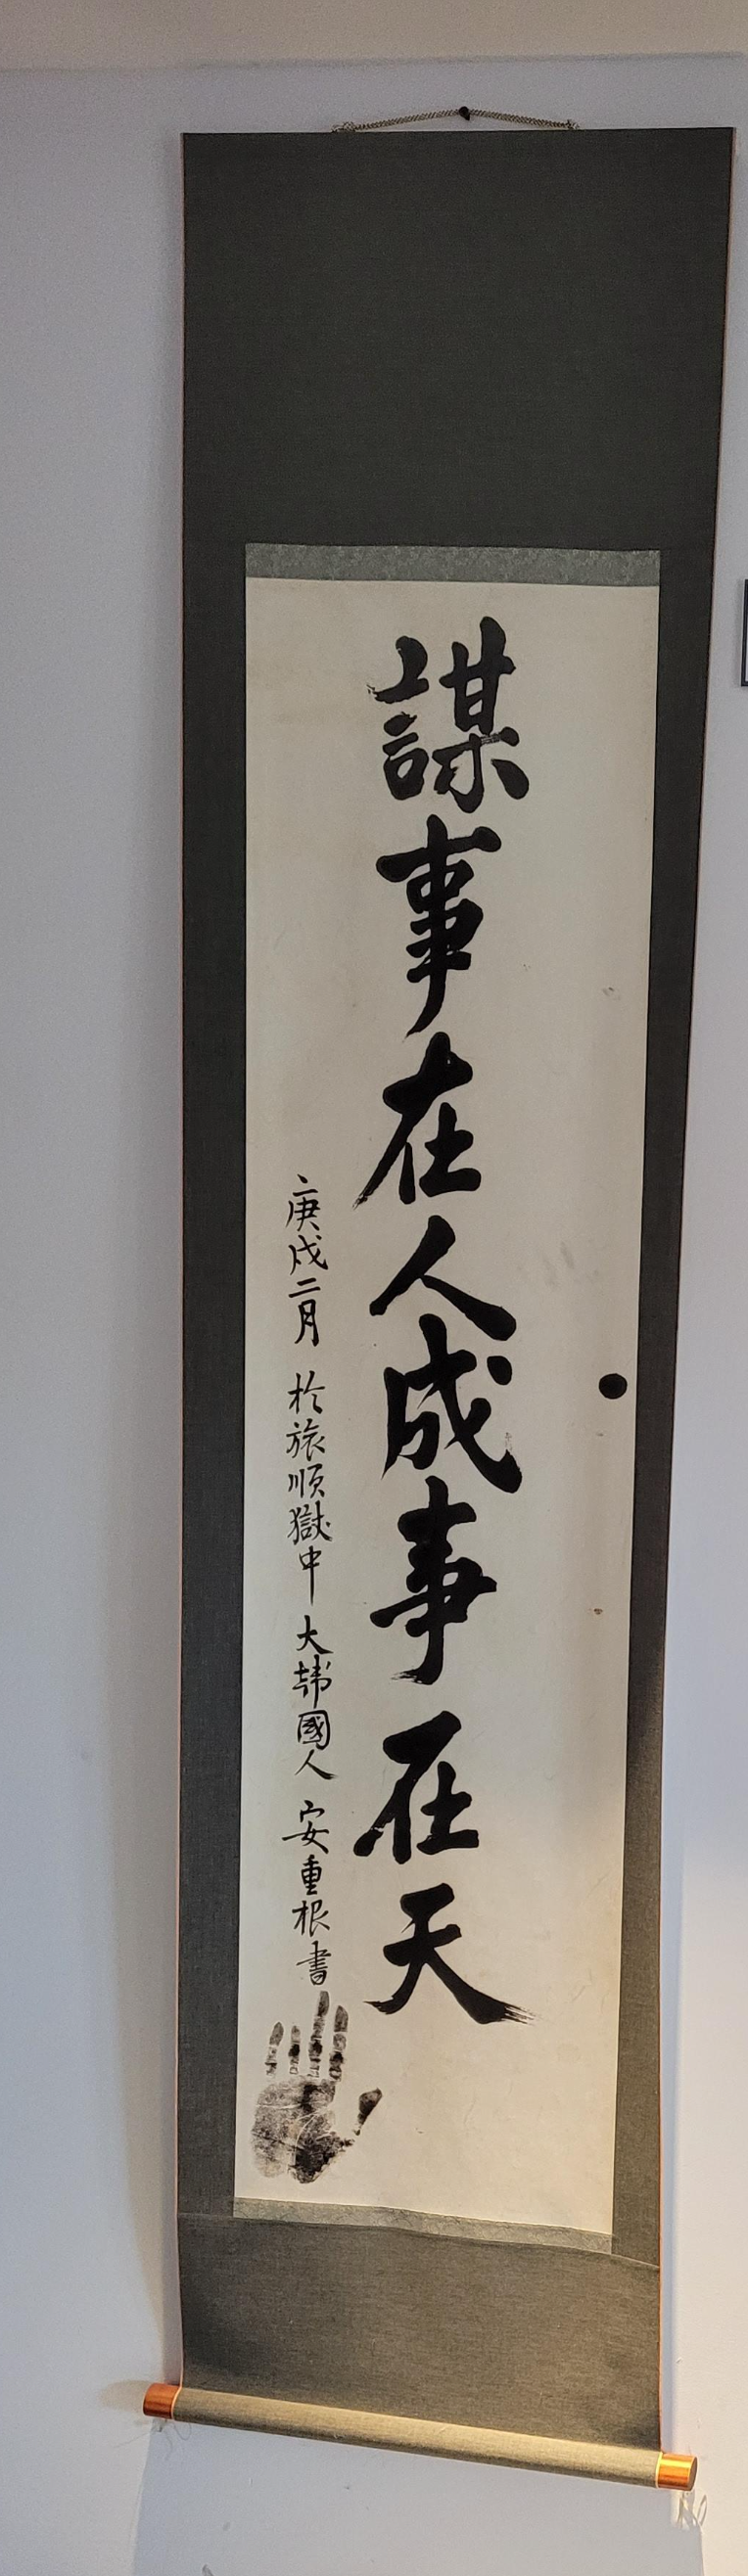 謀事在人成事在天
庚戌二月 於旅順獄中 大韓國人 安重根 書